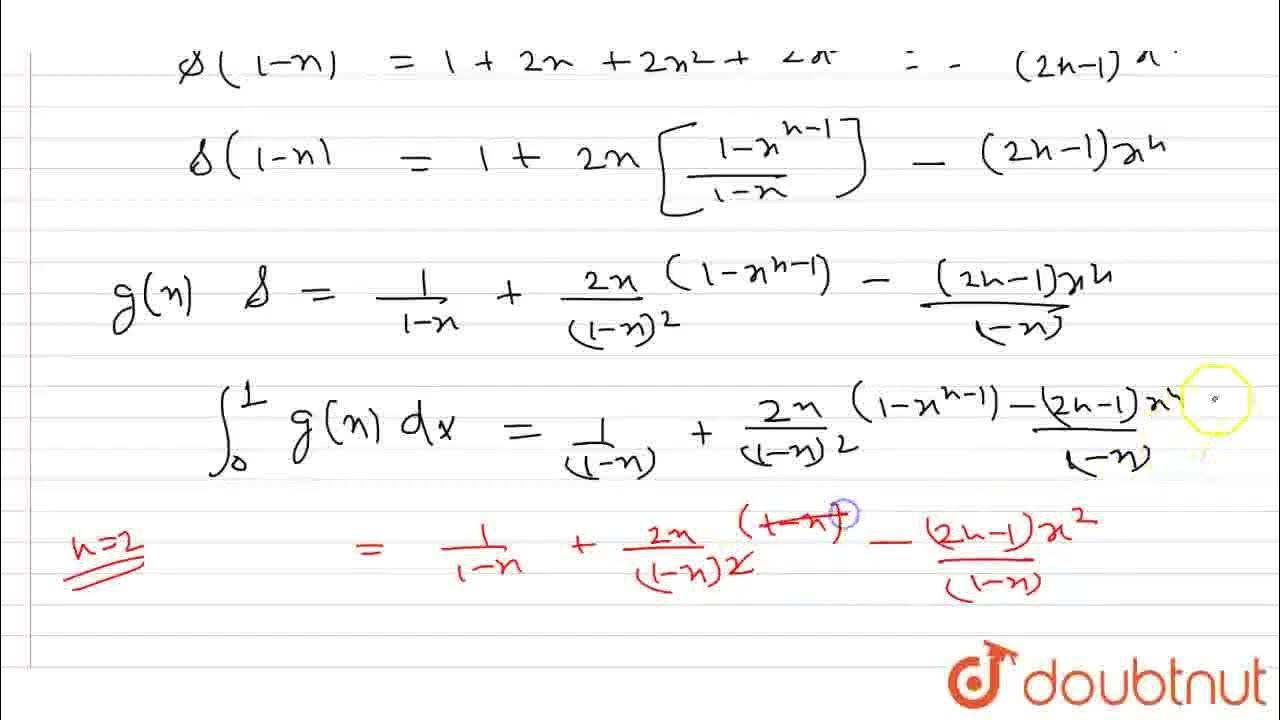 S(1-x) = 1 + 2x + 2x² + 2x - - - (2n-1)x
S(1-x) = 1 + 2x [ (1-x^{n-1})/(1-x) ] - (2n-1)x^n
g(x) S = 1/(1-x) + 2x/(1-x)² (1-x^{n-1}) - (2n-1)x^n/(1-x)
∫₀¹ g(x) dx = 1/(1-x) + 2x/(1-x)² (1-x^{n-1}) - (2n-1)x^n/(1-x)
n=2 = 1/(1-x) + 2x/(1-x)2 (1-x) - (2n-1)x²/(1-x)
doubtnut